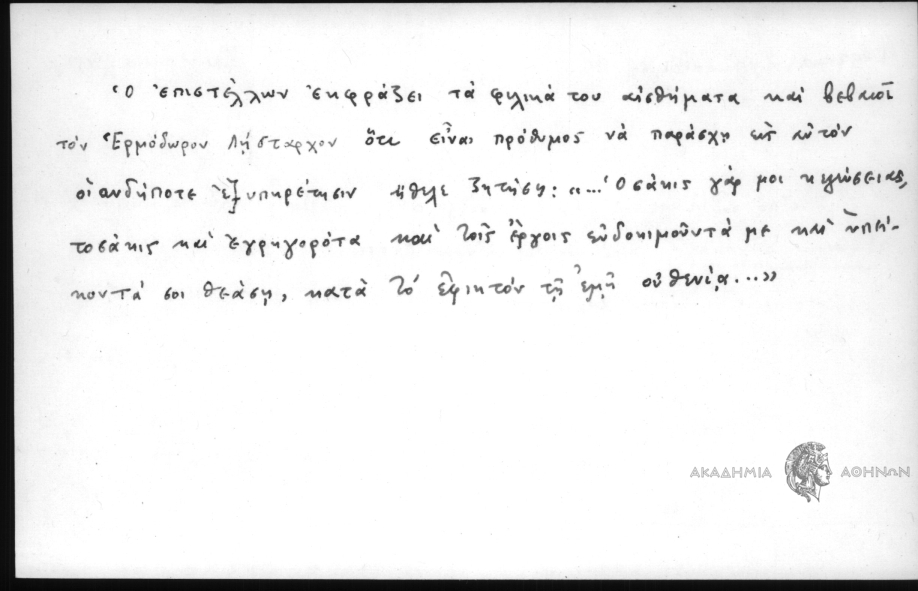 Ὁ ἐπιστέλλων ἐκφράζει τὰ φιλικά του αἰσθήματα καὶ βεβαιοῖ
τὸν Ἑρμόδωρον Λήσταρχον ὅτι εἶναι πρόθυμος νὰ παράσχῃ εἰς αὐτὸν
οἱανδήποτε ἐξυπηρέτησιν ἤθελε ζητήσῃ: «...Ὁσάκις γάρ μοι κελεύσειας,
τοσάκις καὶ ἐγρηγορότα καὶ τοῖς ἔργοις εὐδοκιμοῦντά με καὶ ὑπεί-
κοντά σοι θεάσῃ, κατὰ τὸ ἐφικτὸν τῇ ἐμῇ οὐθενίᾳ...»
ΑΚΑΔΗΜΙΑ ΑΘΗΝΩΝ